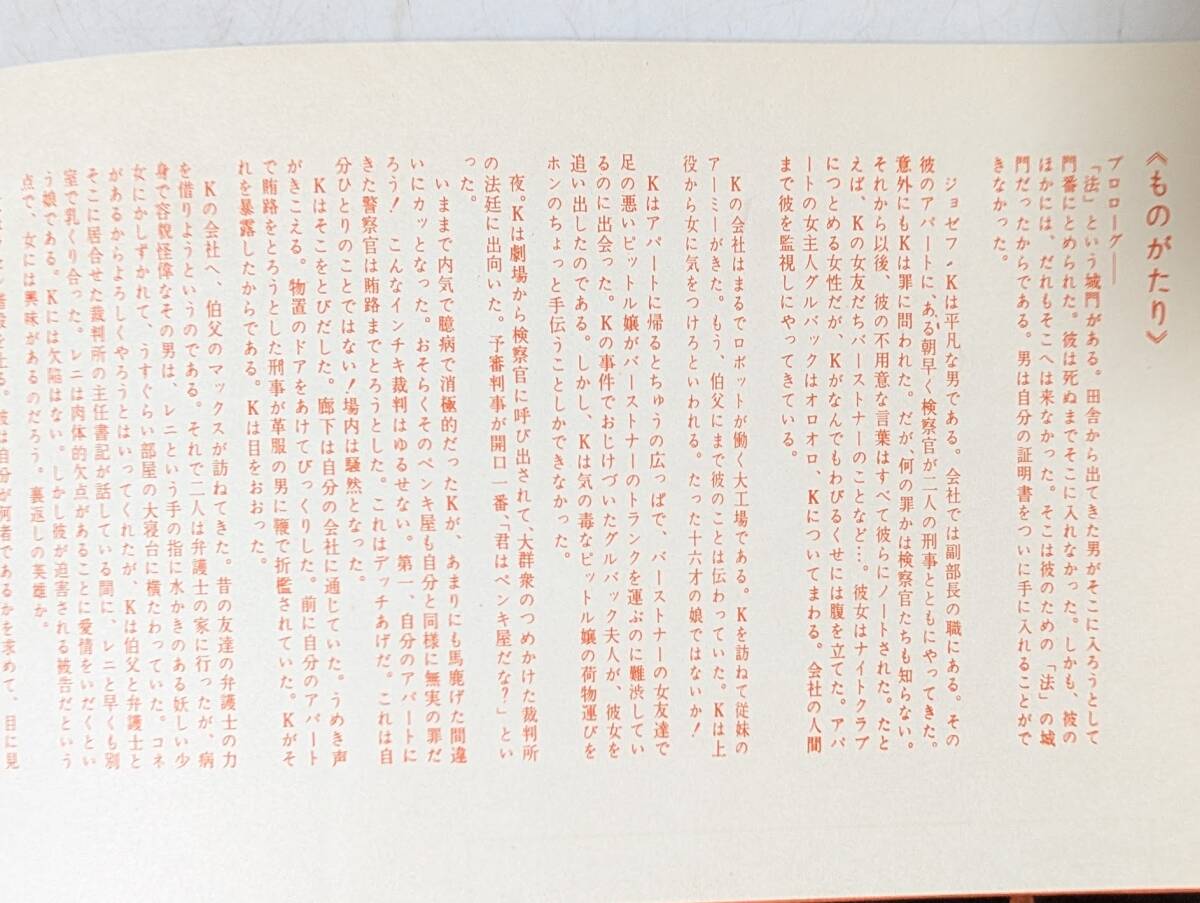 《ものがたり》
プロローグ――
「法」という城門がある。田舎から出てきた男がそこに入ろうとして
門番にとめられた。彼は死ぬまでそこに入れなかった。しかも、彼の
ほかには、だれもそこへは来なかった。そこは彼のための「法」の城
門だったからである。男は自分の証明書をついに手に入れることがで
きなかった。
ジョゼフ・Kは平凡な男である。会社では副部長の職にある。その
彼のアパートに、ある朝早く検察官が二人の刑事とともにやってきた。
意外にもKは罪に問われた。だが、何の罪かは検察官たちも知らない。
それから以後、彼の不用意な言葉はすべて彼らにノートされた。たと
えば、Kの女友だちバーストナーのことなど…。彼女はナイトクラブ
につとめる女性だが、Kがなんでもわびるくせには腹を立てた。アパ
ートの女主人グルバックはオロオロ、Kについてまわる。会社の人間
まで彼を監視しにやってきている。
Kの会社はまるでロボットが働く大工場である。Kを訪ねて従妹の
アーミーがきた。もう、伯父にまで彼のことは伝わっていた。Kは上
役から女に気をつけろといわれる。たった十六才の娘ではないか!
Kはアパートに帰るとちゅうの広っぱで、バーストナーの女友達で
足の悪いピットル嬢がバーストナーのトランクを運ぶのに難渋してい
るのに出会った。Kの事件でおじけづいたグルバック夫人が、彼女を
追い出したのである。しかし、Kは気の毒なピットル嬢の荷物運びを
ホンのちょっと手伝うことしかできなかった。
夜。Kは劇場から検察官に呼び出されて、大群衆のつめかけた裁判所
の法廷に出向いた。予審判事が開口一番、「君はペンキ屋だな?」とい
った。
いままで内気で臆病で消極的だったKが、あまりにも馬鹿げた間違
いにカッとなった。おそらくそのペンキ屋も自分と同様に無実の罪だ
ろう! こんなインチキ裁判はゆるせない。第一、自分のアパートに
きた警察官は賄路までとろうとした。これはデッチあげだ。これは自
分ひとりのことではない!場内は騒然となった。
Kはそこをとびだした。廊下は自分の会社に通じていた。うめき声
がきこえる。物置のドアをあけてびっくりした。前に自分のアパート
で賄路をとろうとした刑事が革服の男に鞭で折檻されていた。Kがそ
れを暴露したからである。Kは目をおおった。
Kの会社へ、伯父のマックスが訪ねてきた。昔の友達の弁護士の力
を借りようというのである。それで二人は弁護士の家に行ったが、病
身で容貌怪偉なその男は、レニという手の指に水かきのある妖しい少
女にかしずかれて、うすぐらい部屋の大寝台に横たわっていた。コネ
があるからよろしくやろうとはいってくれたが、Kは伯父と弁護士と
そこに居合せた裁判所の主任書記が話している間に、レニと早くも別
室で乳くり合った。レニは肉体的欠点があることに愛情をいだくとい
う娘である。Kには欠陥はない。しかし彼が迫害される被告だという
点で、女には興味があるのだろう。裏返しの英雄か。
彼は自分が何者であるかを求めて、目に見